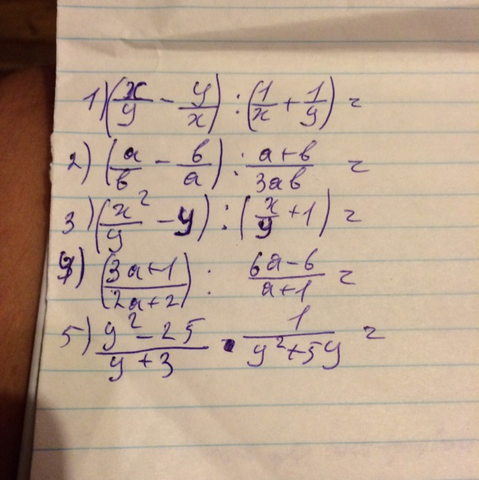 1) (x/y - y/x) : (1/x + 1/y) =
2) (a/b - b/a) : a+b/3ab =
3) (x²/y - y) : (x/y + 1) =
4) (3a+1/2a+2) : 6a-6/a+1 =
5) y²-25/y+3 · 1/y²+5y =